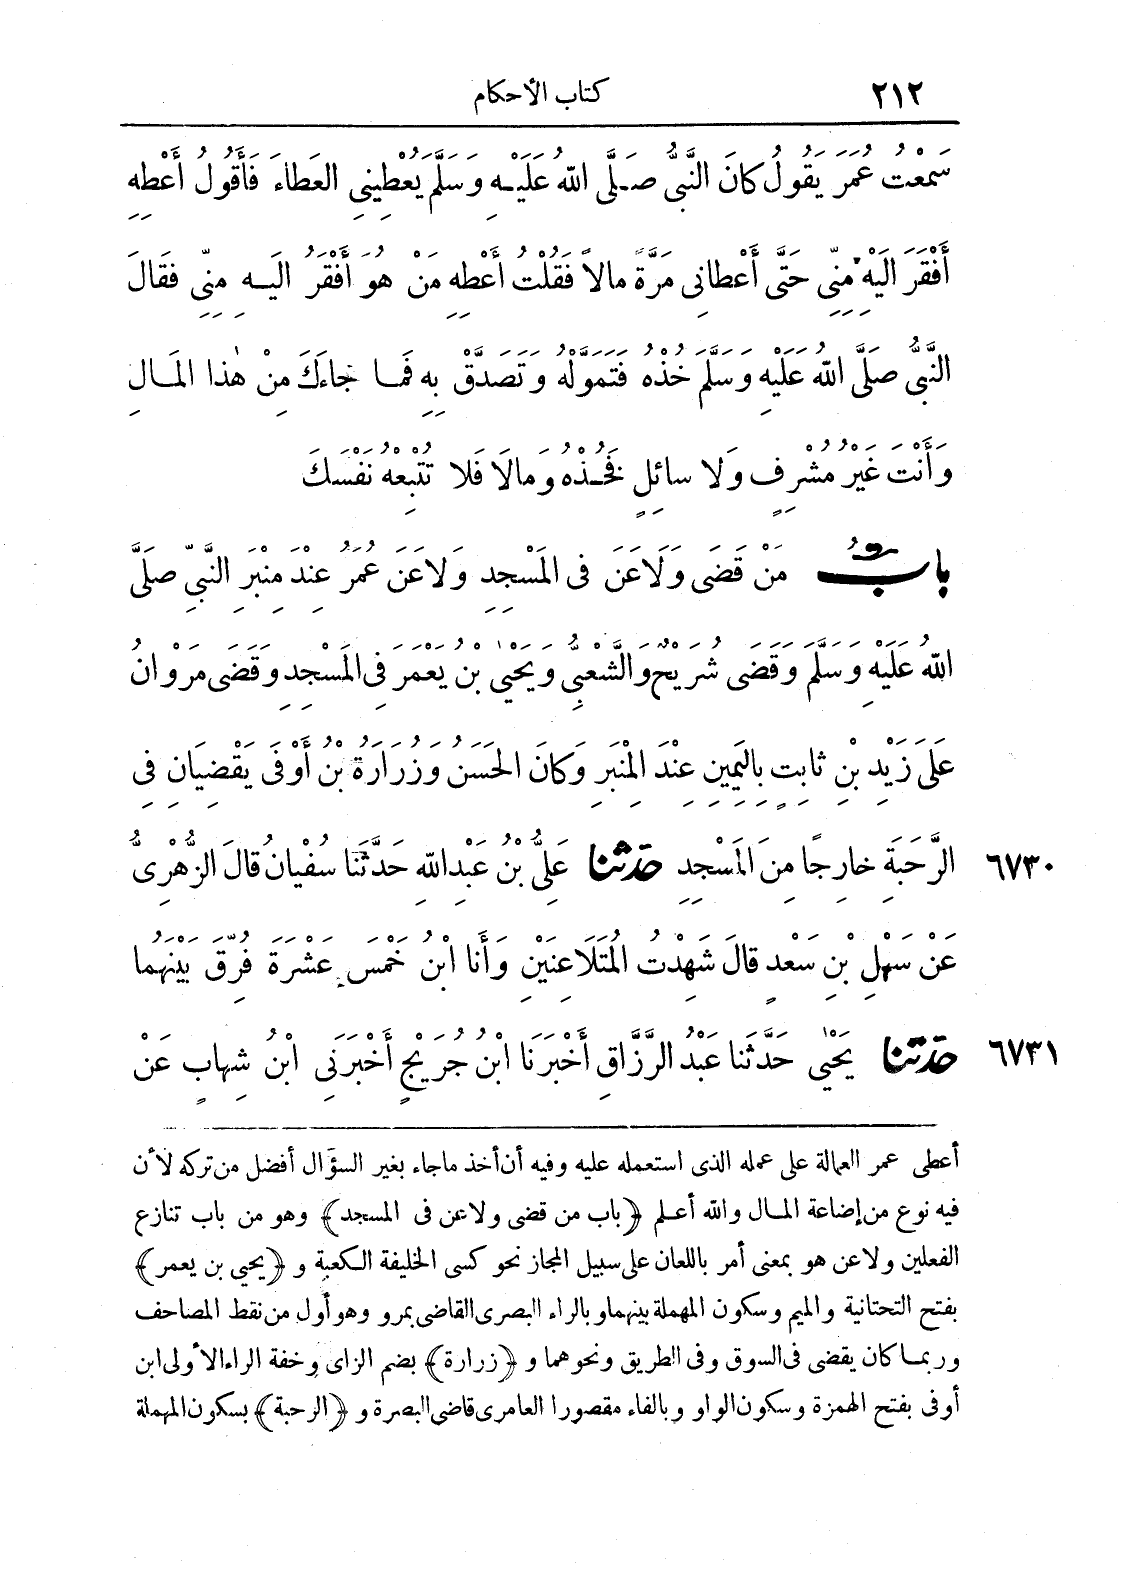 ٢١٢ كتاب الأحكام
سَمِعْتُ عُمَرَ يَقُولُ كَانَ النَّبِىُّ صَلَّى اللهُ عَلَيْهِ وَسَلَّمَ يُعْطِينِى العَطَاءَ فَأَقُولُ أَعْطِهِ
أَفْقَرَ الَيْهِ مِنِّى حَتَّى أَعْطانِى مَرَّةً مالاً فَقُلْتُ أَعْطِهِ مَنْ هُوَ أَفْقَرُ الَيْهِ مِنِّى فَقَالَ
النَّبِىُّ صَلَّى اللهُ عَلَيْهِ وَسَلَّمَ خُذْهُ فَتَمَوَّلْهُ وَتَصَدَّقْ بِهِ فَمَا جاءَكَ مِنْ هٰذا المَالِ
وَأَنْتَ غَيْرُ مُشْرِفٍ وَلا سائِلٍ نَخُذْهُ وَمالَا فَلا تُتْبِعْهُ نَفْسَكَ
بابُ مَنْ قَضَى وَلَاعَنَ فى المَسْجِدِ وَلاعَنَ عُمَرُ عِنْدَ مِنْبَرِ النَّبِىِّ صلَّى
اللهُ عَلَيْهِ وَسَلَّمَ وَقَضَى شُرَيْحٌ والشَّعْبِىُّ وَيَحْيٰى بْنُ يَعْمَرَ فى المَسْجِدِ وَقَضَى مَرْوَانُ
عَلَى زَيْدِ بْنِ ثابِتٍ بِاليَمِينِ عِنْدَ المِنْبَرِ وَكانَ الحَسَنُ وَزُرَارَةُ بْنُ أَوْفَى يَقْضِيَانِ فِى
٦٧٣٠ الرَّحَبَةِ خارِجًا مِنَ المَسْجِدِ حدثنا عَلِىُّ بْنُ عَبْدِ اللهِ حَدَّثَنَا سُفْيانُ قالَ الزُّهْرِىُّ
عَنْ سَهْلِ بْنِ سَعْدٍ قالَ شَهِدْتُ المُتَلَاعِنَيْنِ وَأَنا ابْنُ خَمْسَ عَشْرَةَ فُرِّقَ بَيْنَهُما
٦٧٣١ حدثنا يَحْيٰى حَدَّثَنا عَبْدُ الرَّزَّاقِ أَخْبَرَنَا ابْنُ جُرَيْجٍ أَخْبَرَنِى ابْنُ شِهابٍ عَنْ
أعطى عمر العمالة على عمله الذى استعمله عليه وفيه أن أخذ ماجاء بغير السؤال أفضل من تركه لأن
فيه نوع من إضاعة المال والله أعلم ﴿باب من قضى ولاعن فى المسجد﴾ وهو من باب تنازع
الفعلين ولاعن هو بمعنى أمر باللعان على سبيل المجاز نحو كسى الخليفة الكعبة و ﴿يحيى بن يعمر﴾
بفتح التحتانية والميم وسكون المهملة بينهما وبالراء البصرى القاضى بمرو وهو أول من نقط المصاحف
وربما كان يقضى فى السوق وفى الطريق ونحوهما و ﴿زرارة﴾ بضم الزاى وخفة الراء الأولى ابن
أوفى بفتح الهمزة وسكون الواو وبالفاء مقصورا العامرى قاضى البصرة و ﴿الرحبة﴾ بسكون المهملة